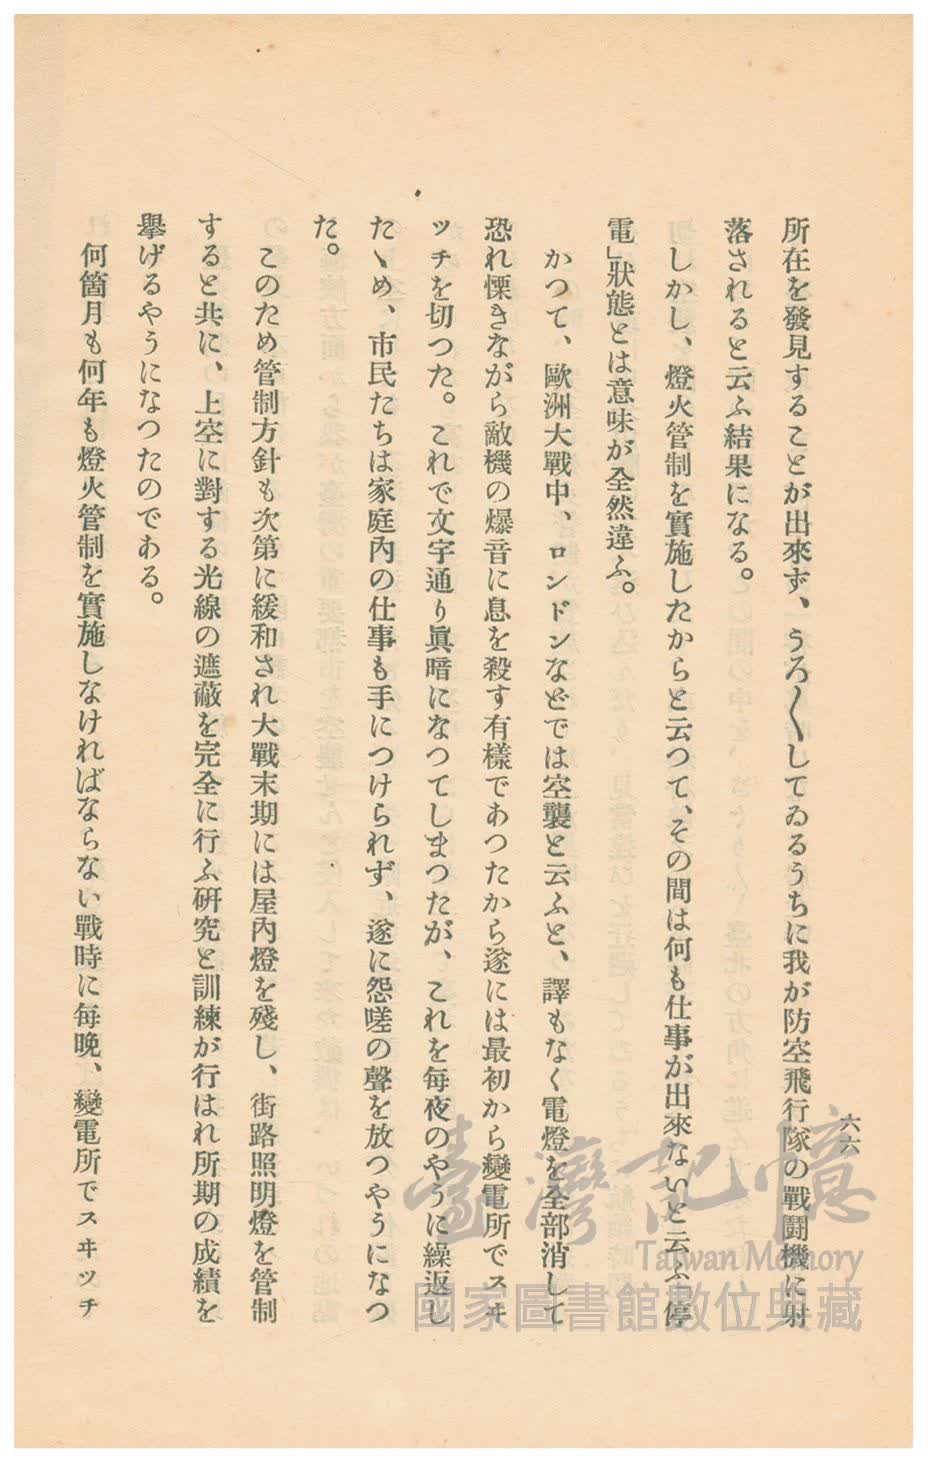 六六
所在を發見することが出來ず、うろ〱してゐるうちに我が防空飛行隊の戰鬪機に射
落されると云ふ結果になる。
しかし、燈火管制を實施したからと云つて、その間は何も仕事が出來ないと云ふ「停
電」狀態とは意味が全然違ふ。
かつて、歐洲大戰中、ロンドンなどでは空襲と云ふと、譯もなく電燈を全部消して
恐れ慄きながら敵機の爆音に息を殺す有樣であつたから遂には最初から變電所でスヰ
ッチを切つた。これで文字通り眞暗になつてしまつたが、これを每夜のやうに繰返し
たゝめ、市民たちは家庭內の仕事も手につけられず、遂に怨嗟の聲を放つやうになつ
た。
このため管制方針も次第に緩和され大戰末期には屋內燈を殘し、街路照明燈を管制
すると共に、上空に對する光線の遮蔽を完全に行ふ硏究と訓練が行はれ所期の成績を
擧げるやうになつたのである。
何箇月も何年も燈火管制を實施しなければならない戰時に每晚、變電所でスヰッチ
臺灣記憶
Taiwan Memory
國家圖書館數位典藏